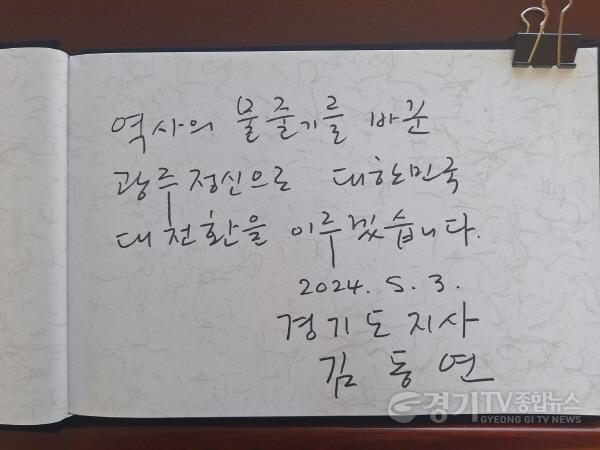 역사의 물줄기를 바꾼
광주정신으로 대한민국
대전환을 이루겠습니다.
2024. 5. 3.
경기도지사
김동연
경기TV종합뉴스
GYEONG GI TV NEWS